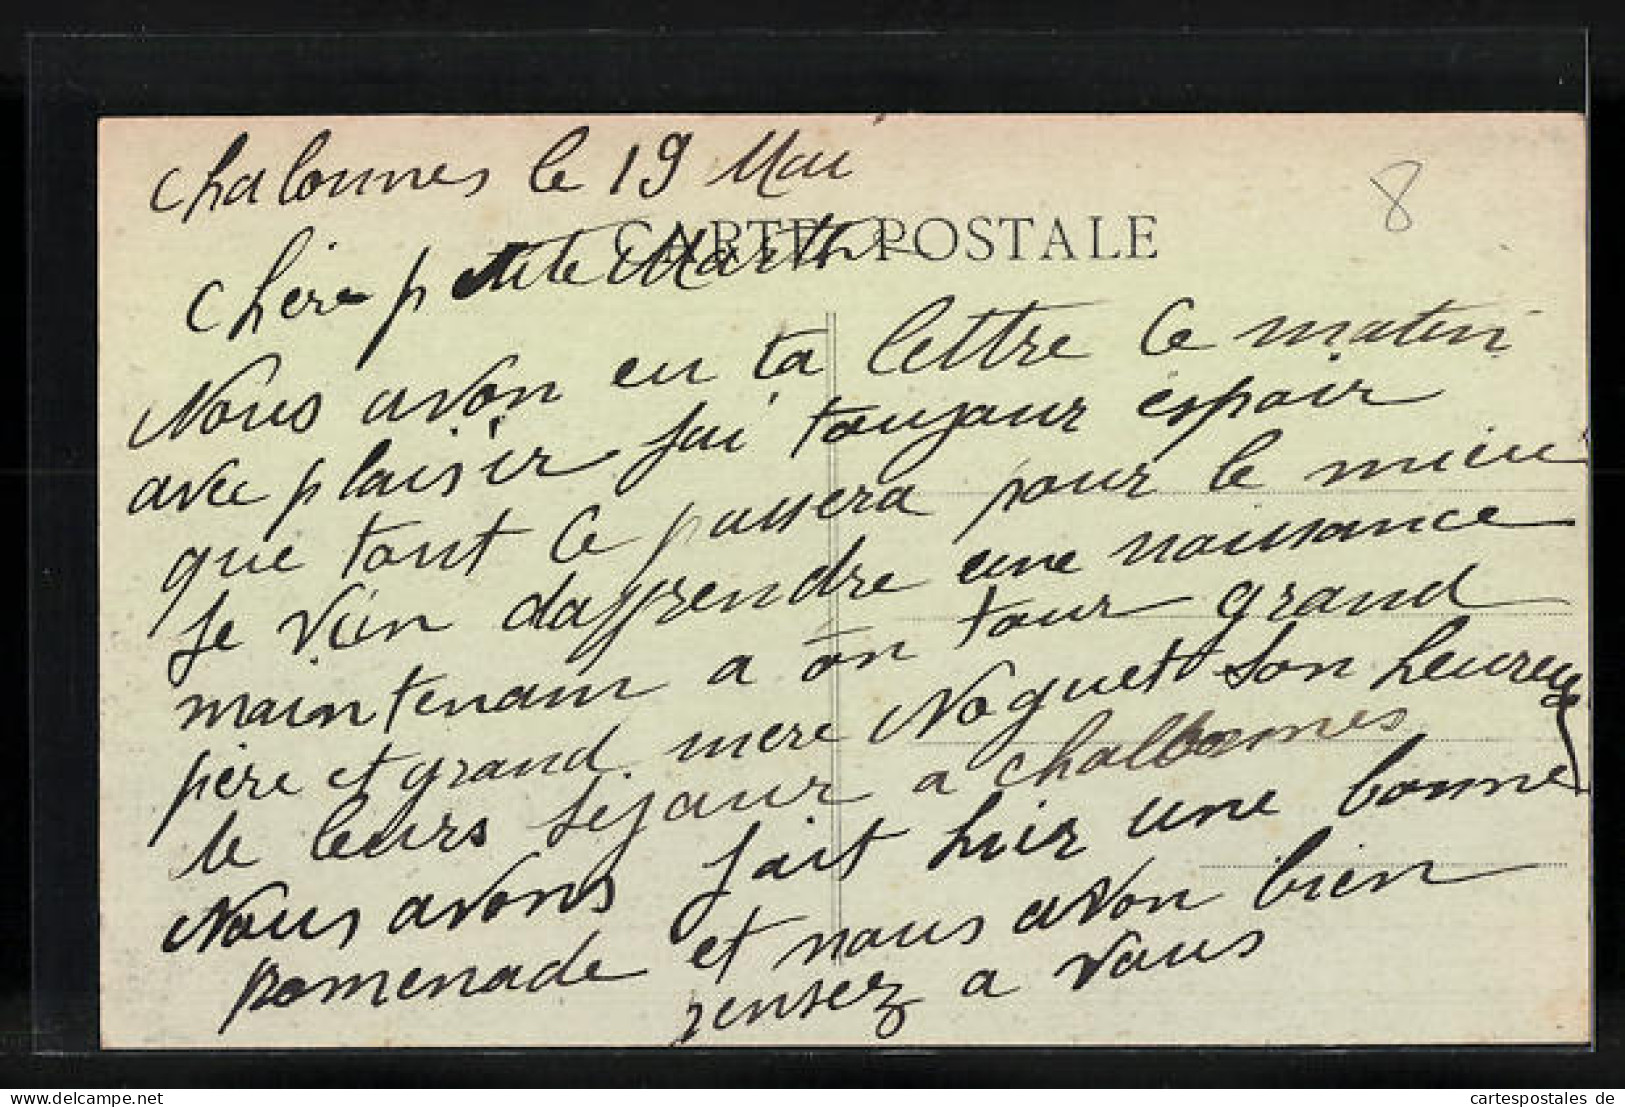 Chalonnes le 19 Mai
8
CARTE POSTALE
Chère petite Marthe
Nous avon eu ta lettre Ce matin
avec plaisir jai toujour espoir
que tout Ce passera pour le mieu
Je vien dapprendre une naissance
maintenant a on tour grand
père et grand mere Noguet son heureux
de leurs sejour a chalonnes
Nous avons fait hier une bonne
promenade et nous avon bien
pensez a vous
delcampe.net
cartespostales de